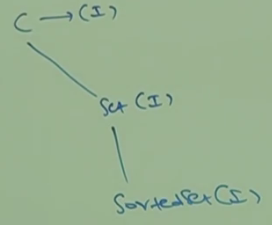 C → (I)
Set (I)
SortedSet (I)